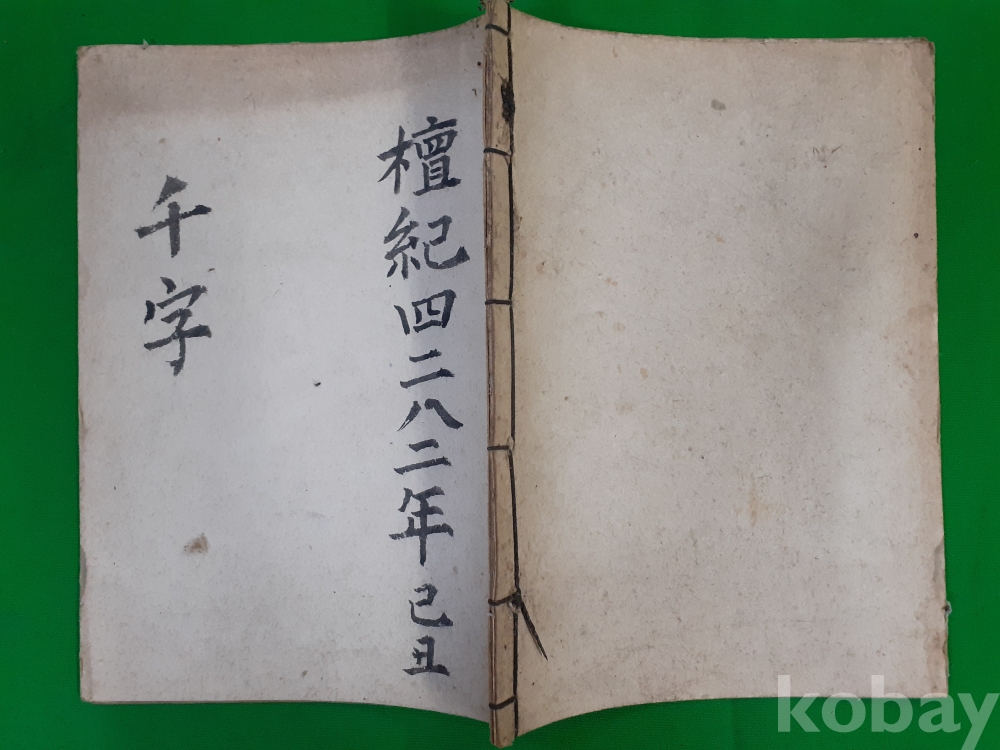 檀紀四二八二年己丑
千字
kobay